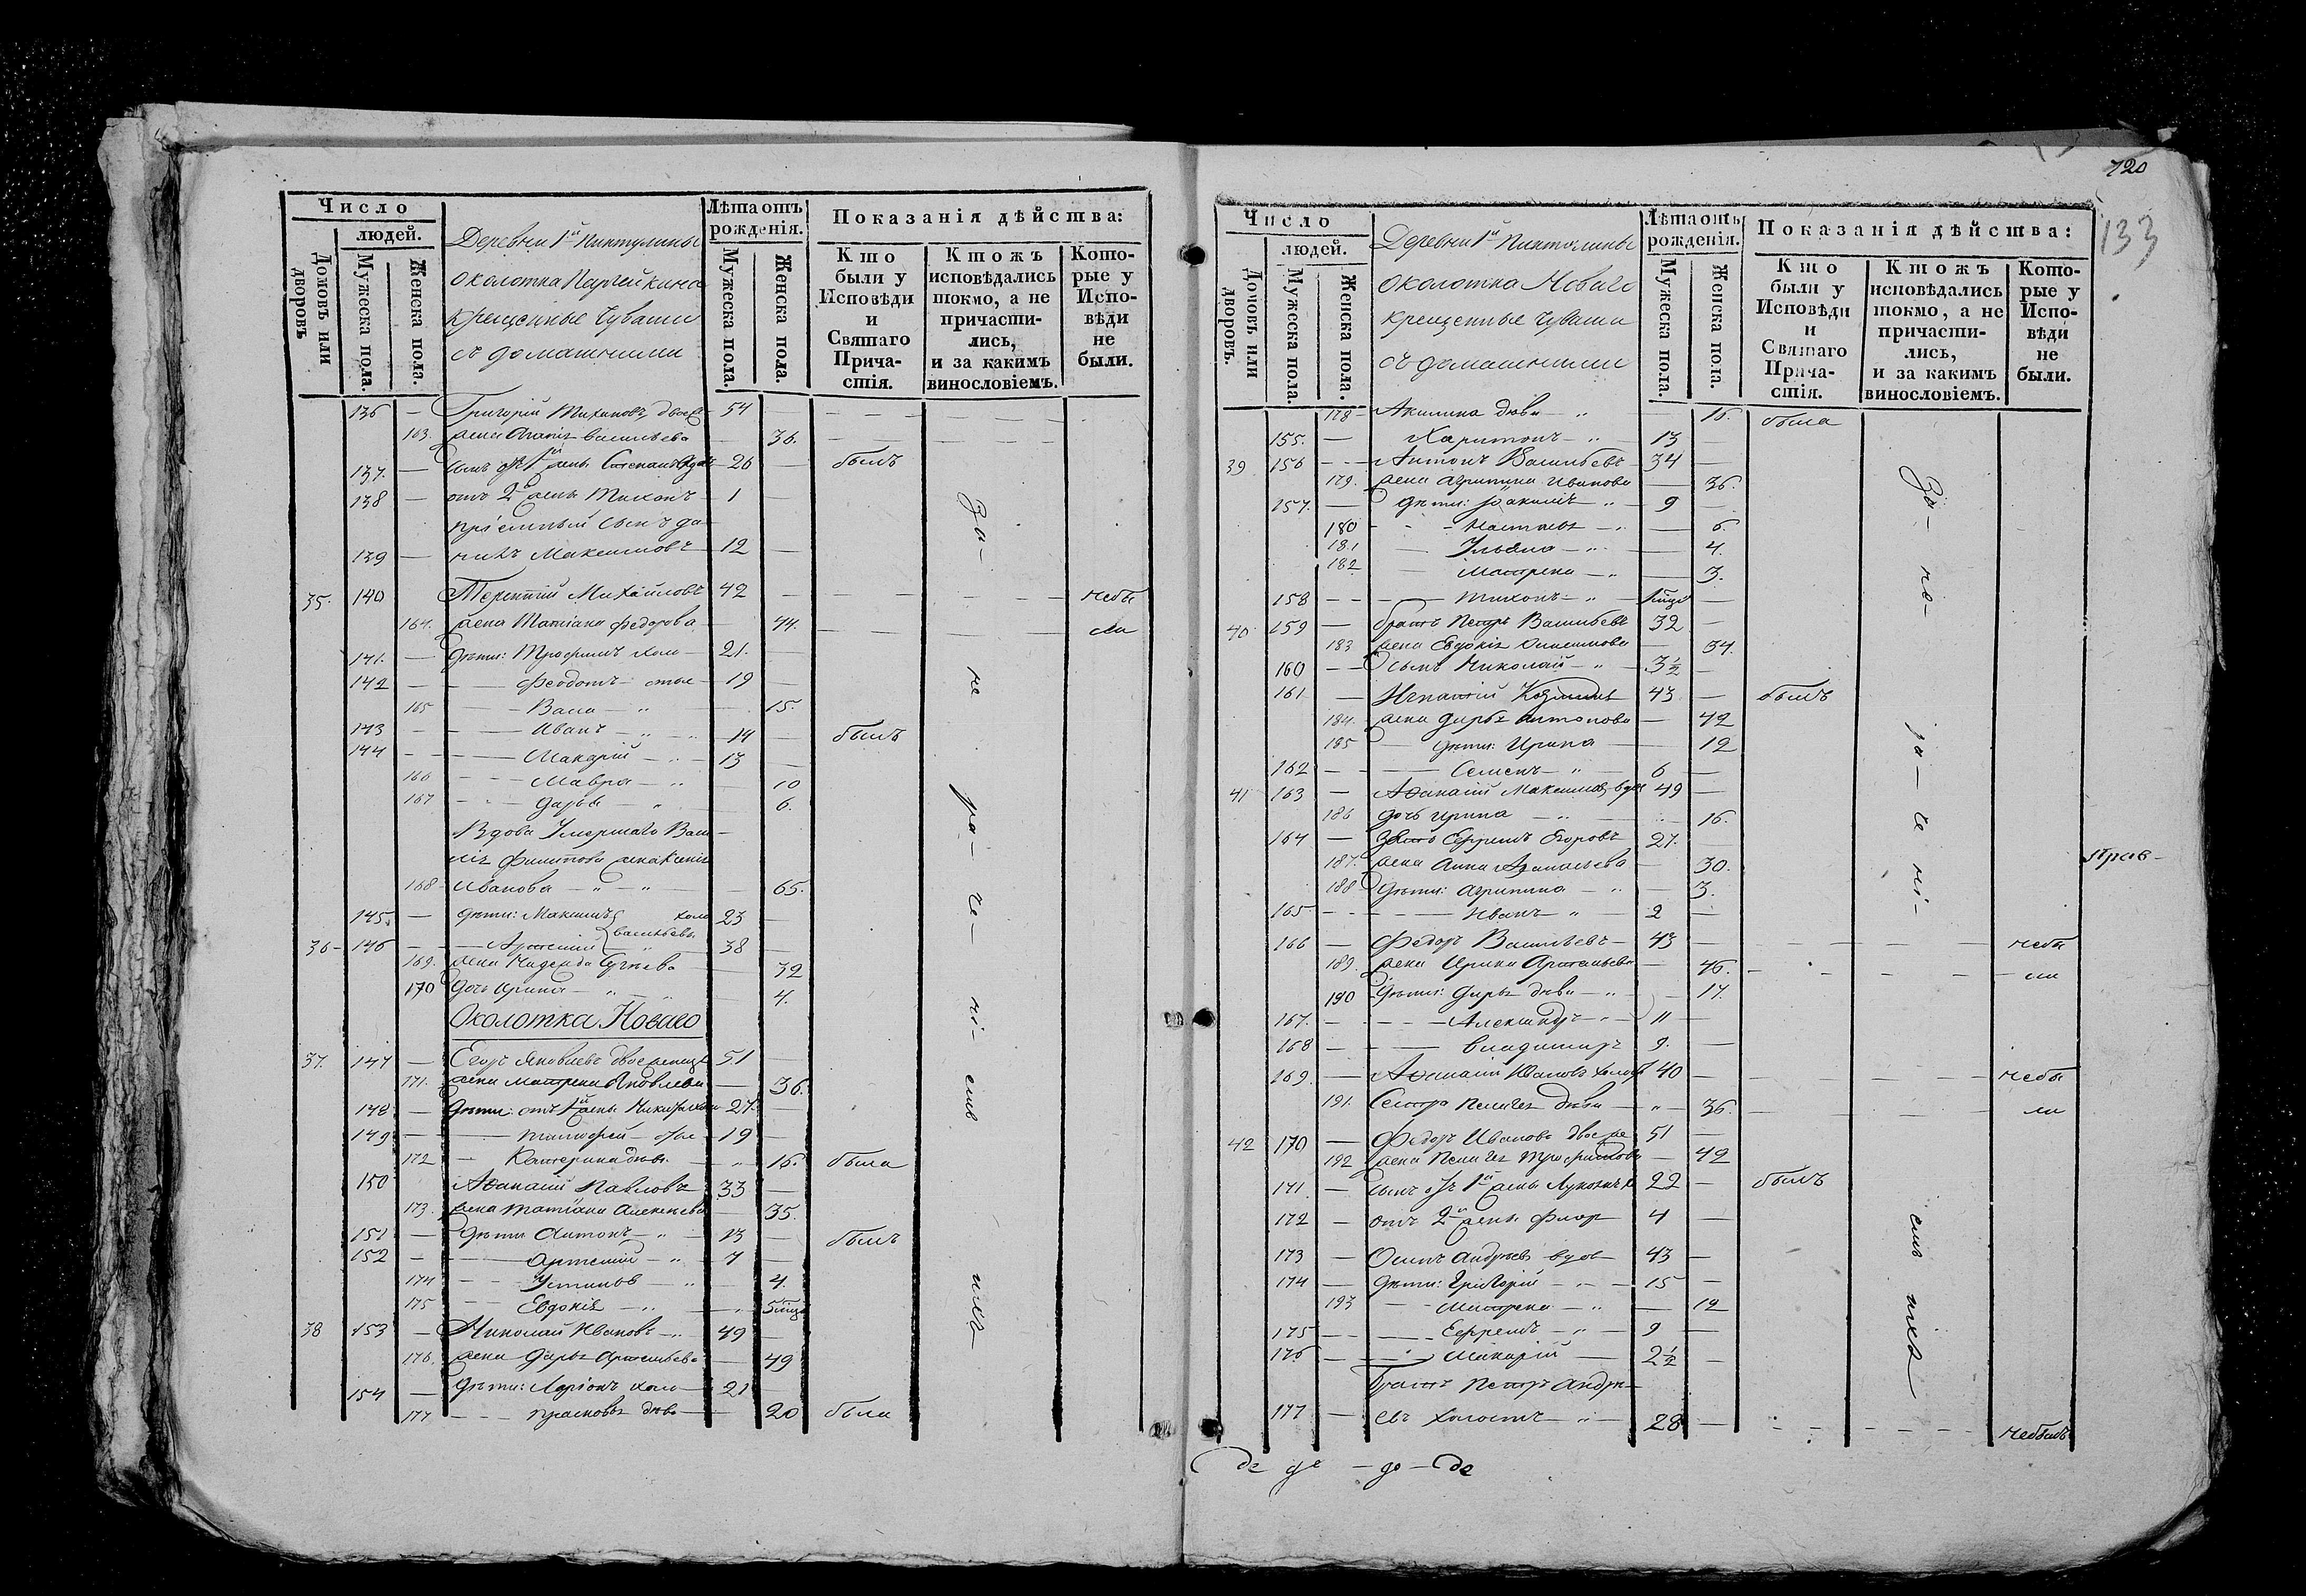 720
133
Число
людей.
Домовъ или дворовъ
Мужеска пола.
Женска пола.
Деревни 1й Пинтулины
околотка Паргейкина
крещенные Чуваши
съ домашними
Лѣта отъ рожденія.
Мужеска пола.
Женска пола.
Показанія дѣйства:
Кто были у Исповѣди и Святаго Причастія.
Ктожъ исповѣдались токмо, а не причастились, и за какимъ винословіемъ.
Которые у Исповѣди не были.
136 — Григорій Тихоновъ 54
163. жена Васильева 36.
137. — сынъ отъ 1й жены Степанъ 26 — былъ
138 — отъ 2й жены Тихонъ 1 —
пріемный сынъ да-
139 — нилъ Максимовъ 12 —
35. 140 Терентій Михайловъ 42 — небы
164. жена Татіана Федорова 44. ли
141. — дѣти: Трофимъ холо 21. —
142 — Феодотъ 19 —
165 — Васа — 15.
143 — Иванъ — 14 — былъ
144 — Макарій — 13 —
166 — Мавра — 10
167 — Дарья — 6.
Вдова Умершаго Васи-
лія Филиппова жена Ксенія
168 Иванова — 65.
145. — дѣти: Максимъ холо 23 —
Васильевы
36 — 146 — Арсеній 38 —
169. жена Надежда Сергѣева — 32
170 дочь Ирина — 4.
Околотка Новаго
37. 147 — Егоръ Яковлевъ двоеженецъ 51 —
171. жена Матрена Яковлева — 36.
148 — дѣти: отъ 1й жены Никита 27. —
149 — Тимофей — 19 —
172 — Катерина дѣв. — 16. была
150 Афанасій Павловъ 33 —
173. жена Татіана Алексѣева — 35.
151 — дѣти Антонъ — 13 — былъ
152 — Артемій — 7 —
174 — Устинья — 4.
175 — Евдокія — 5 мцъ
38 153 — Николай Ивановъ 49 —
176. жена Дарья Арсеньева — 49
154 — дѣти: Ларіонъ холо 21 —
177 — Прасковья дѣв — 20 была
За- не ра- че- ні- емъ ихъ
Число
людей.
Домовъ или дворовъ.
Мужеска пола.
Женска пола.
Деревни 1й Пинтулины
околотка Новаго
крещенные Чуваши
съ домашними
Лѣта отъ рожденія.
Мужеска пола.
Женска пола.
Показанія дѣйства:
Кто были у Исповѣди и Святаго Причастія.
Ктожъ исповѣдались токмо, а не причастились, и за какимъ винословіемъ.
Которые у Исповѣди не были.
178 — Акилина дѣва — 16. была
155. — Харитонъ — 13 —
39 156 — Антонъ Васильевъ 34 —
179. жена Агрипина Иванова — 36.
157. — дѣти: Іоакимъ — 9 —
180 — Настасья — 6.
181 — Ульяна — 4.
182 — Матрена — 3.
158 — Тихонъ —
40 159 — братъ Петръ Васильевъ 32 —
183 жена Евдокія — 34.
160 — сынъ Николай — 3½ —
161 — Игнатій 43 — былъ
184. жена Дарья Антонова — 42
185 — дѣти: Ирина — 12
162 — Семенъ — 6 —
41 163 — Афанасій Максимовъ вдов 49 —
186 дочь Ирина — 16.
164 — зять Ефремъ Егоровъ 27. —
187. жена Анна Афанасьева — 30.
188 дѣти: Агрипина — 3.
165 — Иванъ — 2 —
166 — Федоръ Васильевъ 43 — небы
189. жена Ирина Арсеньева — 46. ли
190 дѣти: Дарья дѣва — 17.
167. — Александръ — 11 —
168 — Владимиръ 9. —
169. — Афанасій Ивановъ холост 40 — небы
191. Сестра Пелагея дѣва — 36. ли
42 170 — Федоръ Ивановъ двоже 51 —
192 жена Пелагея Трофимова — 42
171 — сынъ отъ 1й жены Лукоянъ 22 — былъ
172 — отъ 2й жены Флоръ 4 —
173 — Осипъ Андреевъ вдов 43 —
174 — дѣти: Григорій — 15 —
193 — Матрена — 12
175 — Ефремъ — 9 —
176. — Макарій — 2½ —
братъ Петръ Андре-
177 — евъ холостъ — 28 — небылъ
За- не- ра- че ні- емъ ихъ
Прав-